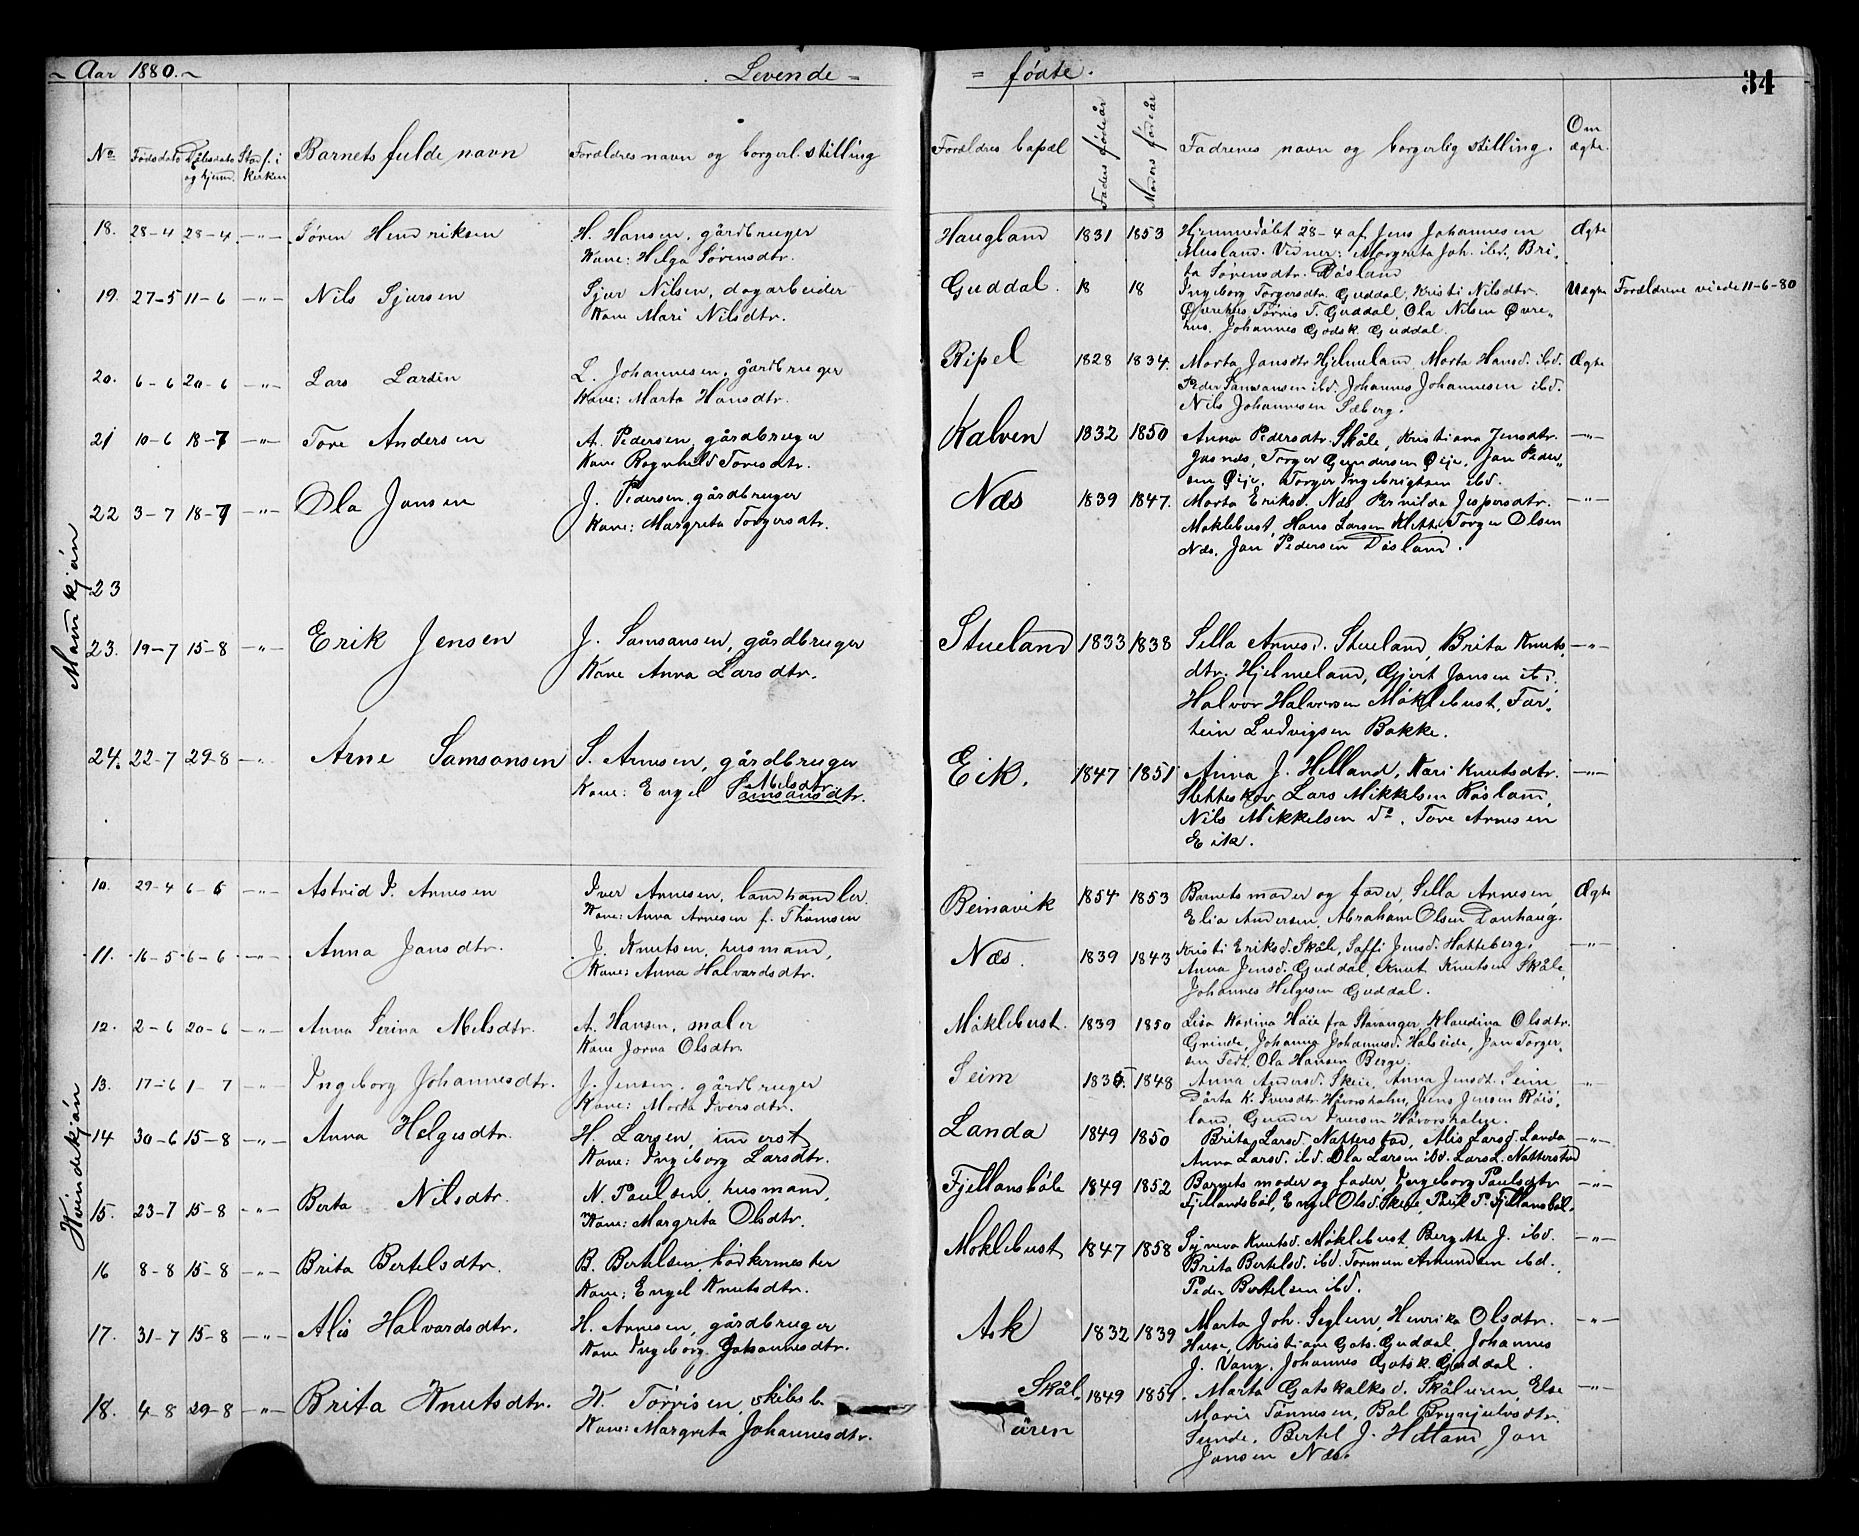 ~ Aar 1880. ~
Levende =
= fødte.
34
No
Fødsdato
Dåbsdato og hjem.
Stadf. i kirken
Barnets fulde navn
Forældres navn og borgerl. stilling
Forældres bopæl
Faders fødeår
Moders fødeår
Fadrenes navn og borgerlig stilling.
Om ægte.
Mandkjøn
18. 28-4 28-4 -"- Søren Hendriksen
H. Hansen, gårdbruger
Kone: Helga Sørensdtr.
Haugland 1831 1853
Hjemmedøbt 28-4 af Jens Johannesen
Musland. Vidner: Margreta Joh. ibd., Bri-
ta Sørensdtr. Døsland
Ægte
19. 27-5 11-6 -"- Nils Sjursen
Sjur Nilsen, dagarbeider
Kone Mari Nilsdtr.
Guddal. 18 18
Ingeborg Torgersdtr. Guddal, Kristi Nilsdtr.
Øvrehus, Tørris T. Guddal, Ola Nilsen Øvre-
hus. Johannes Godsk. Guddal.
Uægte Forældrene viede 11-6-80
20. 6-6 20-6 -"- Lars Larsen
L. Johannesen, gårdbruger
Kone: Marta Hansdtr.
Ripel 1828 1834.
Marta Jansdtr Hjelmeland, Marta Hansd. ibd.
Peder Samsonsen ibd. Johannes Johannesen ibd.
Nils Johannesen Sæberg.
Ægte
21 10-6 18-7 -"- Tore Andersen
A. Pedersen, gårdbruger
Kone Ragnhild Toresdtr.
Kalven 1832 1850
Anna Pedersdtr. Skåle, Kristiana Jensdtr.
Jøsnæs, Torger Gundersen Øije, Jan Peder-
sen Øije, Torger Ingebrigtsen ibd.
-"-
22 3-7 18-7 -"- Ola Jansen
J. Pedersen, gårdbruger
Kone: Margreta Torgersdtr.
Næs 1839 1847.
Marta Eriksd. Næs Pernilda Jespersdtr.
Møklebust, Hans Larsen Klette, Torger Olsen
Næs, Jan Pedersen Døsland.
-"-
23
23. 19-7 15-8 -"- Erik Jensen
J. Samsonsen, gårdbruger
Kone Anna Larsdtr.
Stueland 1833 1838
Sella Arnesd. Stueland, Brita Knuts-
dtr. Hjelmeland, Gjert Jansen ibd.
Halvor Halvorsen Møklebust, Tor-
tein Ludvigsen Bakke.
-"-
24. 22-7 29-8 -"- Arne Samsonsen
S. Arnesen, gårdbruger
Kone: Engel Samsonsdtr. Nilsdtr.
Eik. 1847 1851
Anna J. Helland, Kari Knutsdtr.
Sletteskov Lars Mikkelsen Røsland,
Nils Mikkelsen do. Tore Arnesen
Eik.
-"-
Kvindekjøn
10. 29-4 6-6 -"- Astrid I. Arnesen
Iver Arnesen, landhandler.
Kone: Anna Arnesen f. Thomsen
Beinavik 1854 1853
Barnets moder og fader, Sella Arnesen,
Elia Andersen, Abraham Olsen Tonhaug.
Ægte
11. 16-5 6-6 -"- Anna Jansdtr.
J. Knutsen, husmand,
Kone: Anna Halvardsdtr.
Næs. 1839 1843
Kristi Eriksd. Skåle, Soffi Jensd. Hatteberg,
Anna Jensd. Guddal, Knut Knutsen Skåle,
Johannes Helgesen Guddal.
-"-
12. 2-6 20-6 -"- Anna Serina Alisdtr.
A. Hansen, maler
Kone Jorna Olsdtr.
Møklebust. 1839 1850
Lisa Karina Høie fra Stavanger, Klaudina Olsdtr.
Grinde, Johanna Johannesd. Halseide, Jan Torger-
sen Tedt, Ola Hansen Berge.
13. 17-6 1-7 -"- Ingeborg Johannesdtr.
J. Jensen, gårdbruger
Kone: Marta Iversdtr.
Seim 1835. 1848
Anna Andersd. Skeie, Anna Jensdt. Seim
Dårta K. Iversdtr. Håvorsholm, Jens Jensen Røis-
land, Gunder Iversen Håvorsholm.
-"-
14 30-6 15-8 -"- Anna Helgesdtr.
H. Larsen, inderst
Kone: Ingeborg Larsdtr.
Landa 1849 1850
Brita Larsd. Natterstad, Alis Larsd. Landa
Anna Larsd. ibd. Ola Larsen ibd. Lars L. Natterstad
-"-
15. 23-7 15-8 -"- Berta Nilsdtr.
N. Paulsen, husmand,
Kone: Margreta Olsdtr.
Fjellansbøle 1849 1852
Barnets moder og fader, Ingeborg Paulsdtr
Fjellandsbøl, Engel Olsd. Skeie, Paul P. Fjellansbøl.
-"-
16 8-8 15-8 -"- Brita Bertelsdtr.
B. Bertelsen, bødkermester
Kone; Engel Knutsdtr.
Møklebust 1847 1858
Synneva Knutsd. Møklebust, Bergitte J. ibd.
Brita Bertelsd. ibd. Tormun Amundsen ibd.
Peder Bertelsen ibd.
-"-
17. 31-7 15-8 -"- Alis Halvardsdtr.
H. Arnesen, gårdbruger
Kone Ingeborg Johannesdtr.
Ask 1832 1839
Marta Joh. Seglem, Henrika Olsdtr.
Huse, Kristiane Gots. Guddal, Johannes
J. Vang, Johannes Gotsk. Guddal.
-"-
18. 4-8 29-8 -"- Brita Knutsdtr.
K. Tørrisen, skibsb.
Kone: Margreta Johannesdtr.
Skål-
åren 1849 1851.
Marta Gotskalksd. Skåluren, Else
Marie Tønnesen, Bol Brynjulvsdtr.
Sunde, Bertel J. Hetland, Jan
Jansen Næs.
-"-